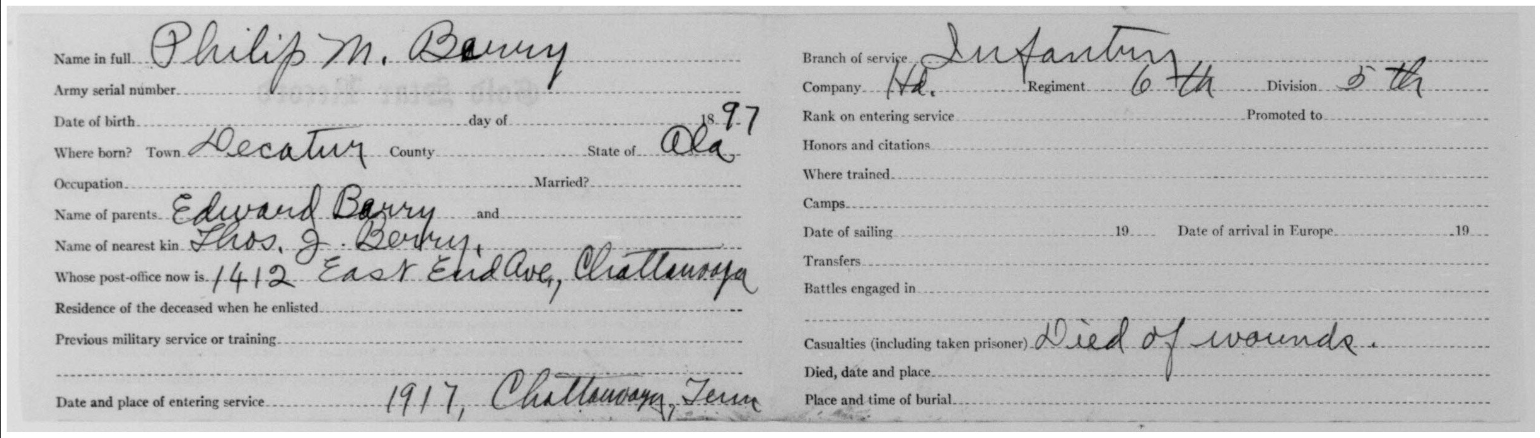 Name in full Philip M. Berry
Army serial number
Date of birth day of 1897
Where born? Town Decatur County State of Ala.
Occupation Married?
Name of parents Edward Barry and
Name of nearest kin Thos. J. Berry.
Whose post-office now is 1412 East End Ave., Chattanooga
Residence of the deceased when he enlisted
Previous military service or training
Date and place of entering service 1917, Chattanooga, Tenn
Branch of service Infantry
Company Hd. Regiment 6th Division 5th
Rank on entering service Promoted to
Honors and citations
Where trained
Camps
Date of sailing 19 Date of arrival in Europe 19
Transfers
Battles engaged in
Casualties (including taken prisoner) Died of wounds.
Died, date and place
Place and time of burial